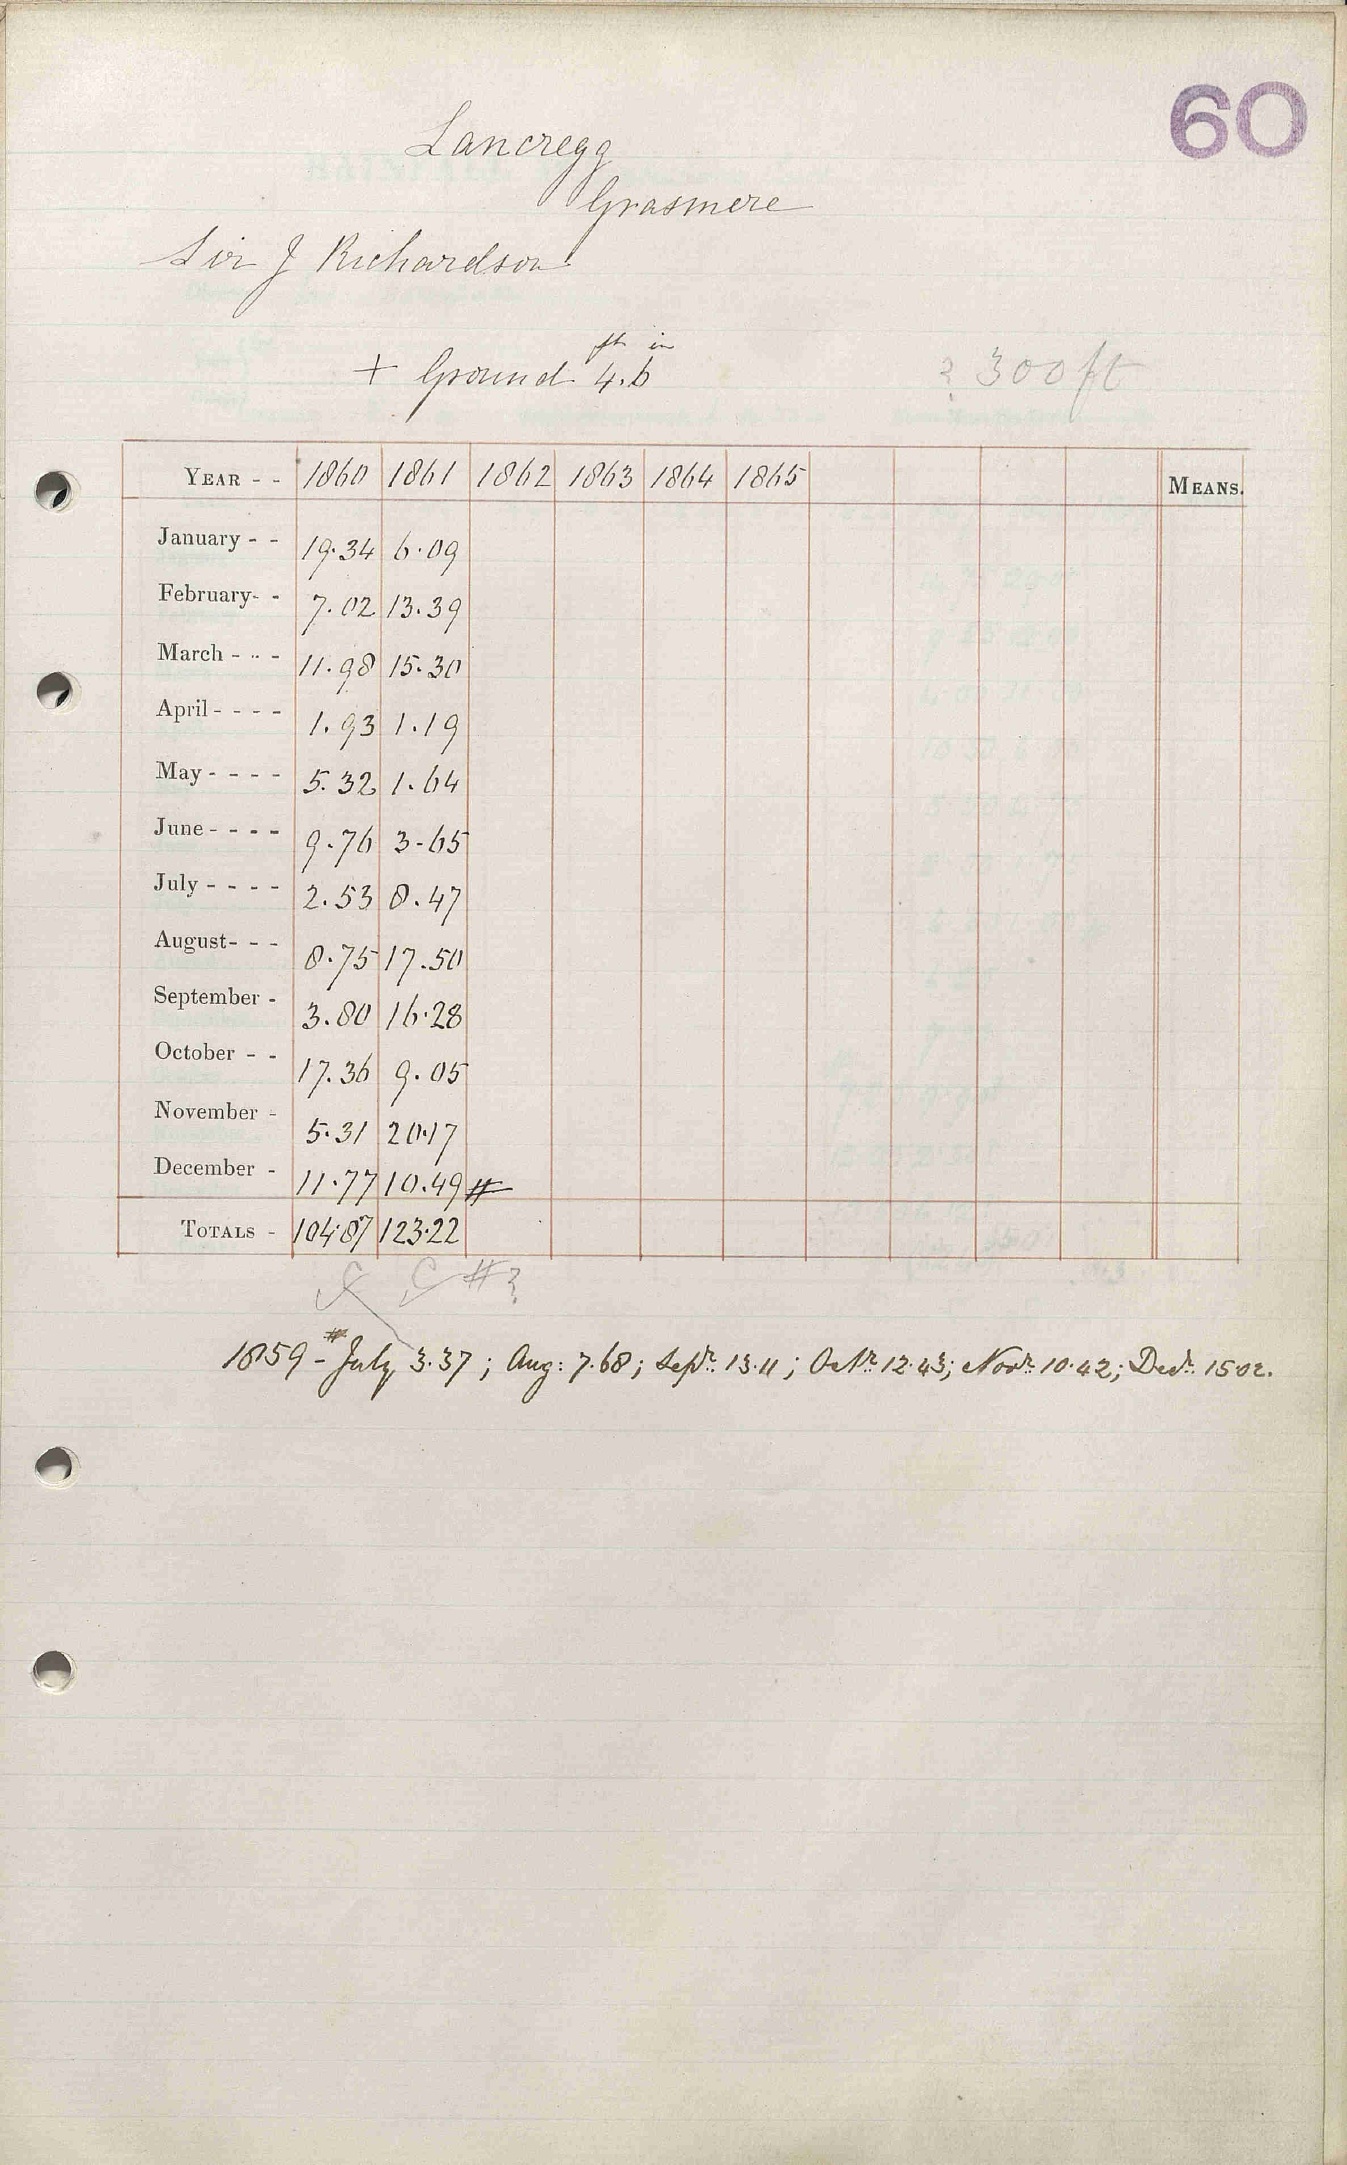 60
Lancregg
Grasmere
Sir J Richardson
ft in
+ Ground 4.6
? 300 ft
YEAR - - 1860 1861 1862 1863 1864 1865 MEANS.
January - - 19.34 6.09
February- - 7.02 13.39
March - - - 11.98 15.30
April - - - - 1.93 1.19
May - - - - 5.32 1.64
June - - - - 9.76 3.65
July - - - - 2.53 8.47
August- - - 8.75 17.50
September - 3.80 16.28
October - - 17.36 9.05
November - 5.31 20.17
December - 11.77 10.49 #
TOTALS - 104.87 123.22
# ?
#
1859 - July 3.37; Aug: 7.68; Sepr. 13.11; Octr. 12.43; Novr. 10.42; Decr. 15.02.